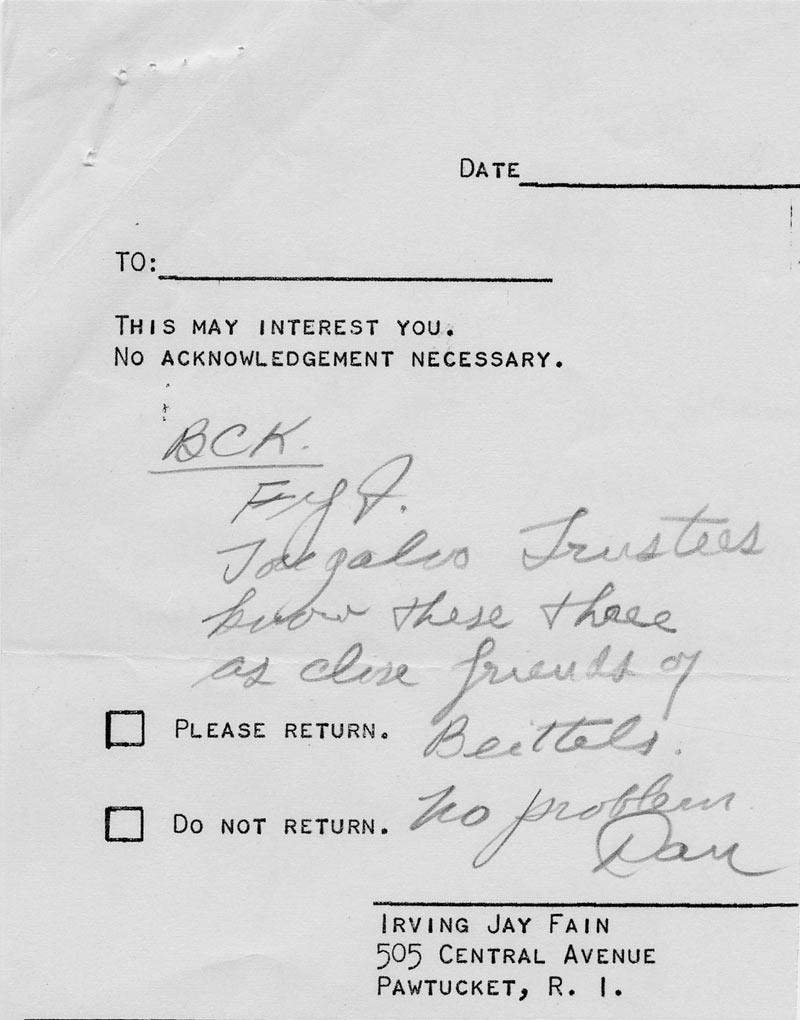 DATE
TO:
THIS MAY INTEREST YOU.
NO ACKNOWLEDGEMENT NECESSARY.
BCK.
FYI.
Tougaloo Trustees
know these three
as close friends of
Beittels.
PLEASE RETURN.
No problem
Dan
DO NOT RETURN.
IRVING JAY FAIN
505 CENTRAL AVENUE
PAWTUCKET, R. I.